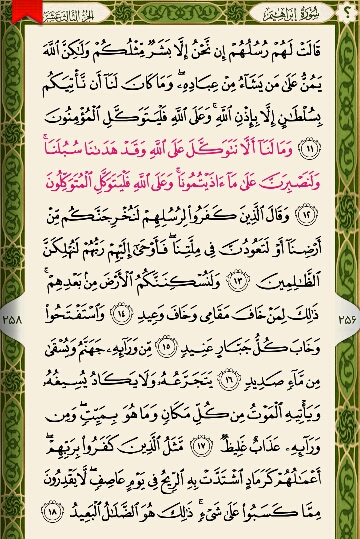 سُورَةُ إِبْرَاهِيم
الجُزءُ الثَّالِثَ عَشَر
قَالَتْ لَهُمْ رُسُلُهُمْ إِن نَّحْنُ إِلَّا بَشَرٌ مِّثْلُكُمْ وَلَٰكِنَّ اللَّهَ
يَمُنُّ عَلَىٰ مَن يَشَاءُ مِنْ عِبَادِهِ ۖ وَمَا كَانَ لَنَا أَن نَّأْتِيَكُم
بِسُلْطَانٍ إِلَّا بِإِذْنِ اللَّهِ ۚ وَعَلَى اللَّهِ فَلْيَتَوَكَّلِ الْمُؤْمِنُونَ
﴿١١﴾ وَمَا لَنَا أَلَّا نَتَوَكَّلَ عَلَى اللَّهِ وَقَدْ هَدَانَا سُبُلَنَا ۚ
وَلَنَصْبِرَنَّ عَلَىٰ مَا آذَيْتُمُونَا ۚ وَعَلَى اللَّهِ فَلْيَتَوَكَّلِ الْمُتَوَكِّلُونَ
﴿١٢﴾ وَقَالَ الَّذِينَ كَفَرُوا لِرُسُلِهِمْ لَنُخْرِجَنَّكُم مِّنْ
أَرْضِنَا أَوْ لَتَعُودُنَّ فِي مِلَّتِنَا ۖ فَأَوْحَىٰ إِلَيْهِمْ رَبُّهُمْ لَنُهْلِكَنَّ
الظَّالِمِينَ ﴿١٣﴾ وَلَنُسْكِنَنَّكُمُ الْأَرْضَ مِن بَعْدِهِمْ ۚ
ذَٰلِكَ لِمَنْ خَافَ مَقَامِي وَخَافَ وَعِيدِ ﴿١٤﴾ وَاسْتَفْتَحُوا
وَخَابَ كُلُّ جَبَّارٍ عَنِيدٍ ﴿١٥﴾ مِّن وَرَائِهِ جَهَنَّمُ وَيُسْقَىٰ
مِن مَّاءٍ صَدِيدٍ ﴿١٦﴾ يَتَجَرَّعُهُ وَلَا يَكَادُ يُسِيغُهُ
وَيَأْتِيهِ الْمَوْتُ مِن كُلِّ مَكَانٍ وَمَا هُوَ بِمَيِّتٍ ۖ وَمِن
وَرَائِهِ عَذَابٌ غَلِيظٌ ﴿١٧﴾ مَّثَلُ الَّذِينَ كَفَرُوا بِرَبِّهِمْ ۖ
أَعْمَالُهُمْ كَرَمَادٍ اشْتَدَّتْ بِهِ الرِّيحُ فِي يَوْمٍ عَاصِفٍ ۖ لَّا يَقْدِرُونَ
مِمَّا كَسَبُوا عَلَىٰ شَيْءٍ ۚ ذَٰلِكَ هُوَ الضَّلَالُ الْبَعِيدُ ﴿١٨﴾
٢٥٦
٢٥٨
؟